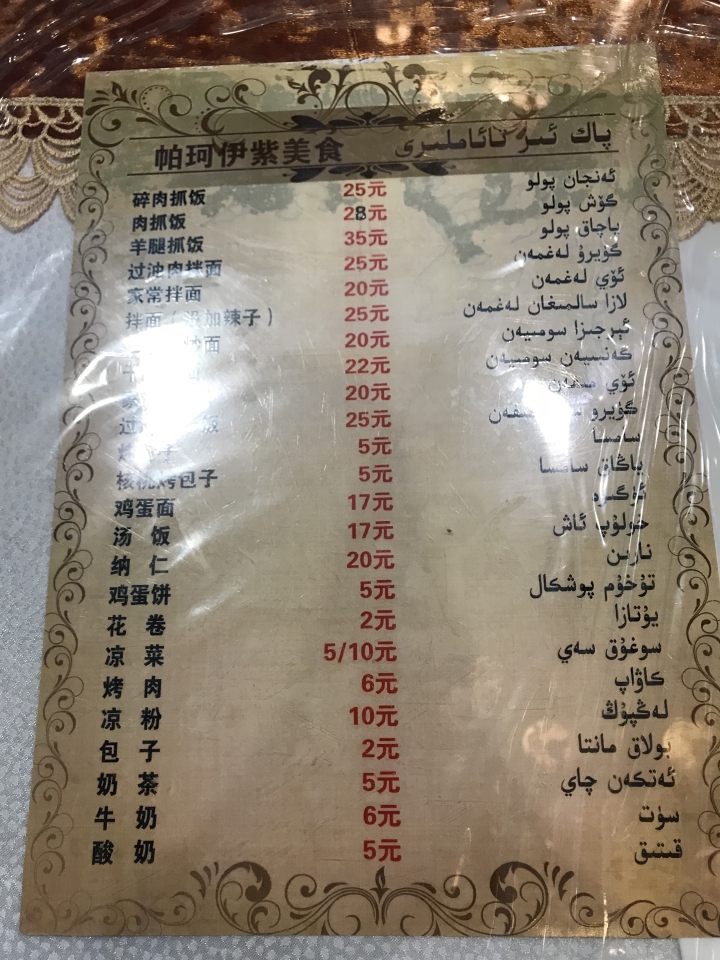 帕珂伊紫美食 پاك ئىز تائاملىرى
碎肉抓饭 25元 ئەنجان پولو
肉抓饭 28元 گۆش پولو
羊腿抓饭 35元 پاچاق پولو
过油肉拌面 25元 گۆيرۇ لەغمەن
家常拌面 20元 ئۆي لەغمەن
拌面（没加辣子） 25元 لازا سالمىغان لەغمەن
炒面 20元 سومىيەن
22元 گەنسىيەن سومىيەن
20元 ئۆي
过 饭 25元 گۆيرو
5元 سامسا
核桃烤包子 5元 ياڭاق سامسا
鸡蛋面 17元 ئۈگىرە
汤 饭 17元 خولۇپ ئاش
纳 仁 20元 نارىن
鸡蛋饼 5元 تۇخۇم پوشكال
花 卷 2元 يۇتازا
凉 菜 5/10元 سوغۇق سەي
烤 肉 6元 كاۋاپ
凉 粉 10元 لەڭپۇڭ
包 子 2元 بولاق مانتا
奶 茶 5元 ئەتكەن چاي
牛 奶 6元 سۈت
酸 奶 5元 قىتىق